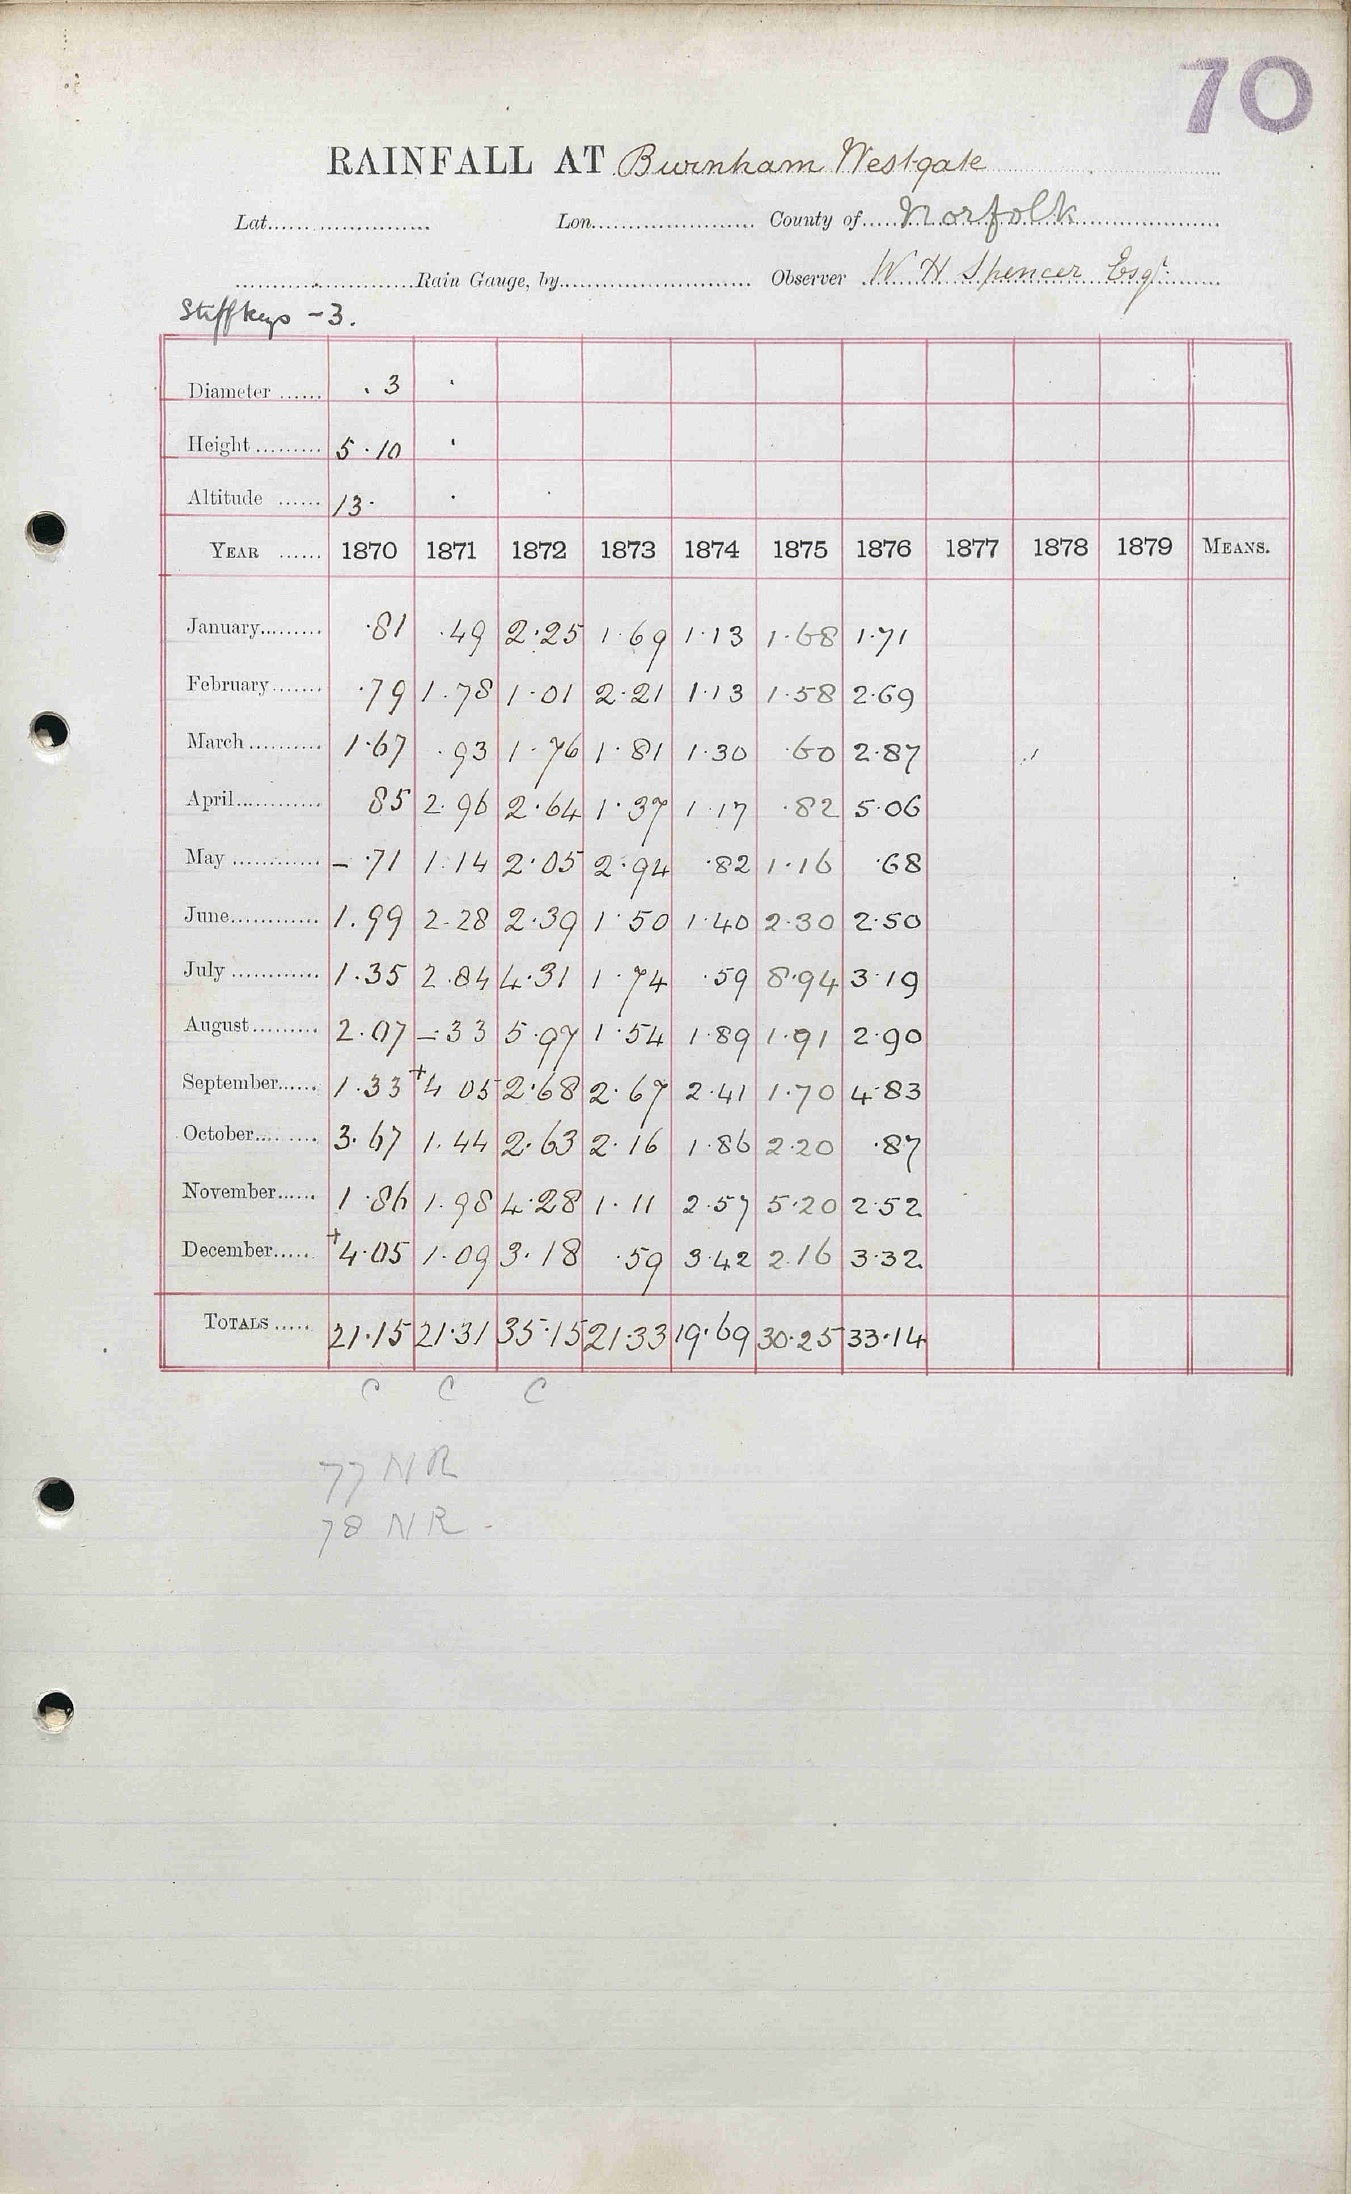 70
RAINFALL AT Burnham Westgate
Lat. Lon. County of Norfolk
Rain Gauge, by Observer W. H. Spencer Esqr.
Stiffkeys - 3.
Diameter . 3
Height 5.10
Altitude 13.
YEAR 1870 1871 1872 1873 1874 1875 1876 1877 1878 1879 MEANS.
January .81 .49 2.25 1.69 1.13 1.68 1.71
February .79 1.78 1.01 2.21 1.13 1.58 2.69
March 1.67 .93 1.76 1.81 1.30 .60 2.87
April 85 2.96 2.64 1.37 1.17 .82 5.06
May - .71 1.14 2.05 2.94 .82 1.16 .68
June 1.99 2.28 2.39 1.50 1.40 2.30 2.50
July 1.35 2.84 4.31 1.74 .59 8.94 3.19
August 2.07 -.33 5.97 1.54 1.89 1.91 2.90
September 1.33 +4 05 2.68 2.67 2.41 1.70 4.83
October 3.67 1.44 2.63 2.16 1.86 2.20 .87
November 1.86 1.98 4.28 1.11 2.57 5.20 2.52
December +4.05 1.09 3.18 .59 3.42 2.16 3.32
TOTALS 21.15 21.31 35.15 21.33 19.69 30.25 33.14
C C C
77 NR
78 NR -